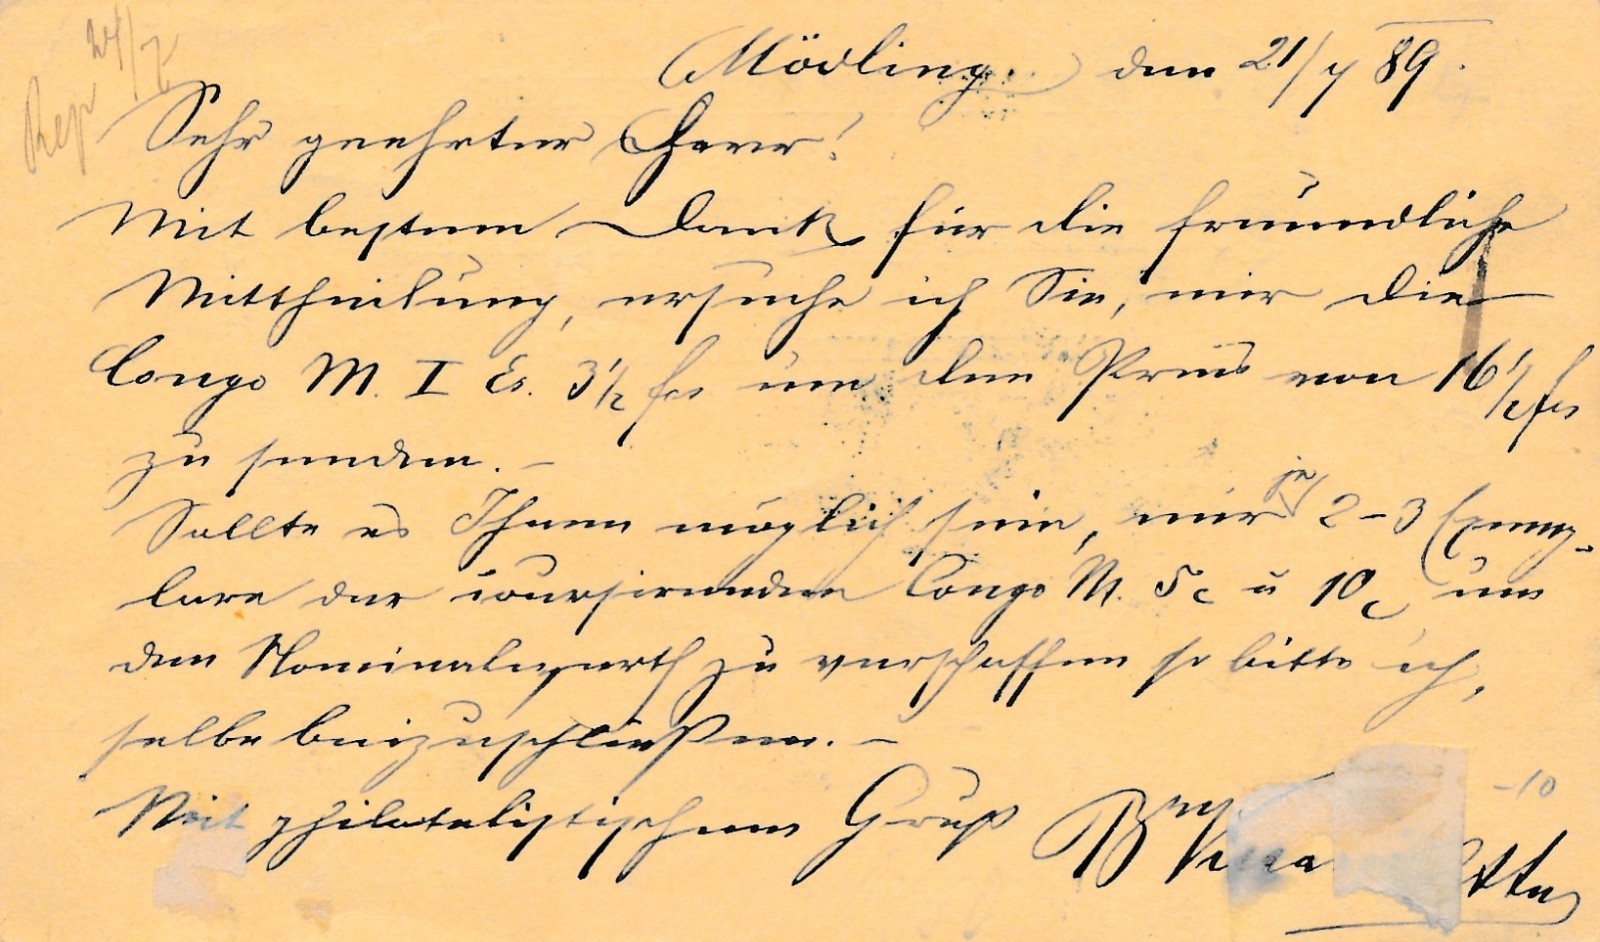 Rep 24/7
Mödling den 21/7 89.
Sehr geehrter Herr!
Mit bestem Dank für die freundliche
Mittheilung, ersuche ich Sie, mir die
Congo M. I Es. 3½ fcs um den Preis von 16½ fcs
zu senden. –
Sollte es Ihnen möglich sein, mir je 2–3 Exemp-
lare der coursirenden Congo M. 5c u 10c um
den Nominalwerth zu verschaffen so bitte ich,
selbe beizuschließen. –
-10
Mit philatelistischem Gruß